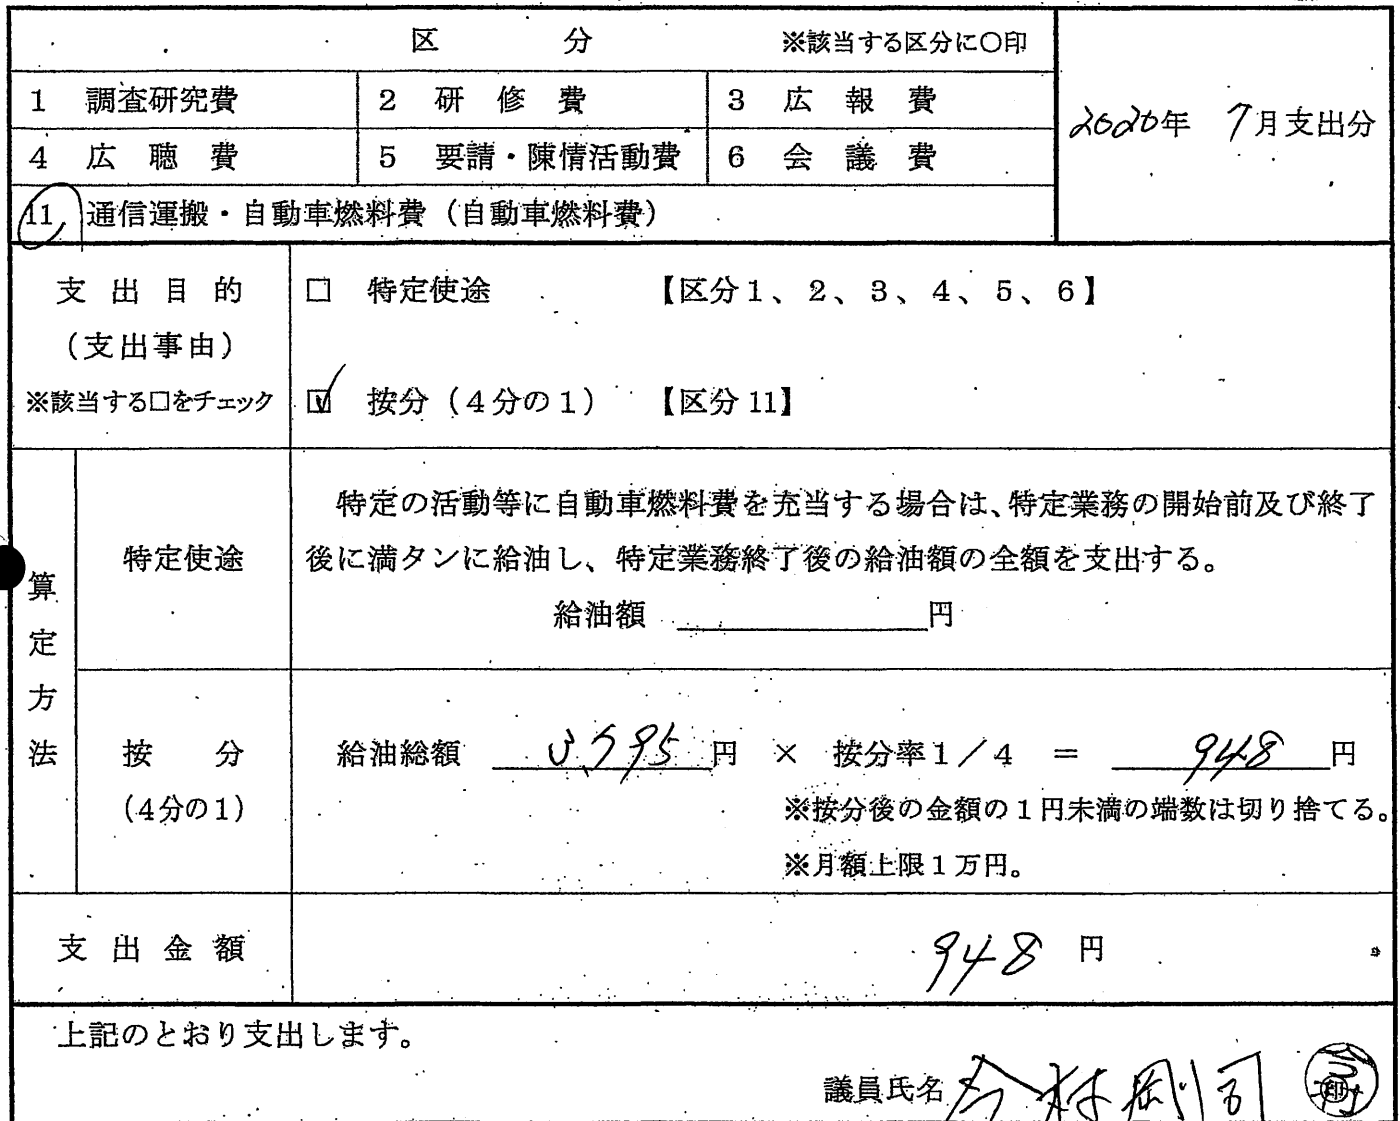 区 分 ※該当する区分に○印
1 調査研究費 2 研修費 3 広報費
2020年 7月支出分
4 広聴費 5 要請・陳情活動費 6 会議費
11 通信運搬・自動車燃料費（自動車燃料費）
支出目的
（支出事由）
※該当する□をチェック
□ 特定使途 【区分1、2、3、4、5、6】
☑ 按分（4分の1） 【区分11】
算定方法
特定使途
特定の活動等に自動車燃料費を充当する場合は、特定業務の開始前及び終了
後に満タンに給油し、特定業務終了後の給油額の全額を支出する。
給油額 円
按分
（4分の1）
給油総額 3,795円 × 按分率1／4 ＝ 948円
※按分後の金額の1円未満の端数は切り捨てる。
※月額上限1万円。
支出金額 948 円
上記のとおり支出します。
議員氏名 今村剛司 印